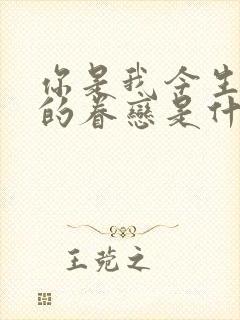 你是我今生
的眷戀是什
王菀之